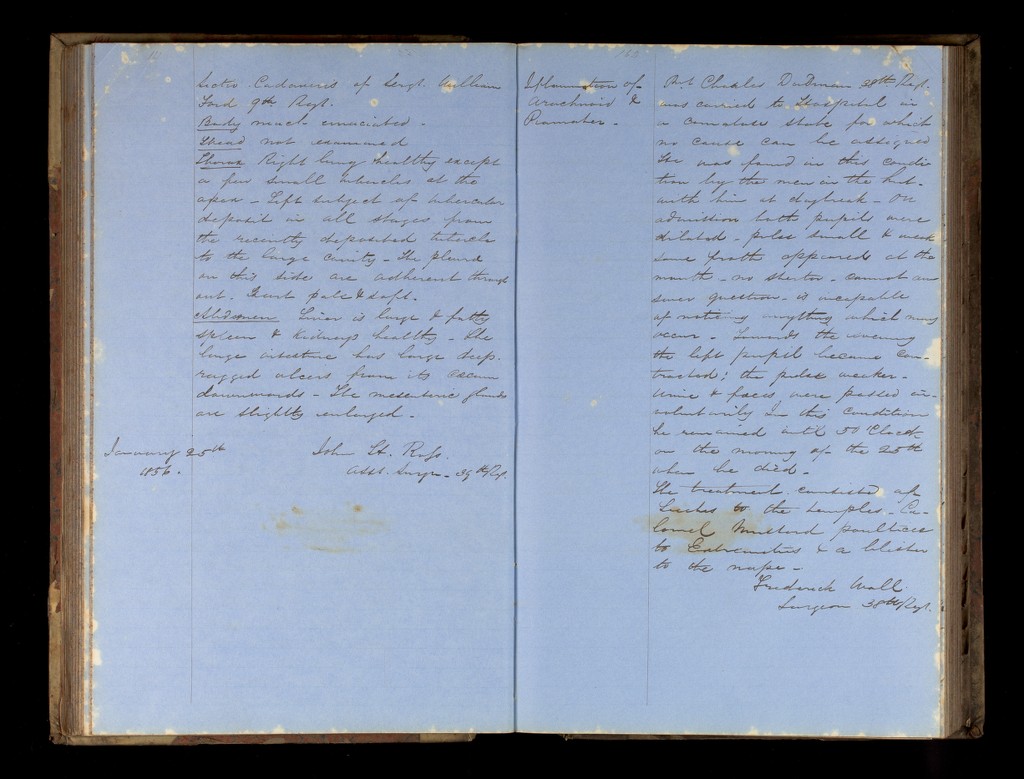 Sectio Cadaveris of Sergt. William
Ford 9th Regt.
Body much emaciated.
Head not examined
Thorax Right lung healthy except
a few small tubercles at the
apex - Left subject of tubercular
deposit in all stages from
the recently deposited tubercle
to the large cavity - The pleura
on this side are adherent through
out. Heart pale & soft.
Abdomen Liver is large & fatty
Spleen & Kidneys healthy - The
large intestine has large deep
ragged ulcers from its caecum
downwards - The mesenteric glands
are slightly enlarged -
January 25th
1856.
John St. Ross.
Asst. Surgn. 39th Regt.
Iflammation of
Arachnoid &
Piamater -
Pvt. Charles Dudman 38th Regt.
was carried to Hospital in
a comatose state for which
no cause can be assigned
He was found in this condi
tion by the men in the hut
with him at daybreak - On
admission both pupils were
dilated - pulse small & weak
some froth appeared at the
mouth - no stertor - cannot an
swer question - is incapable
of noticing anything which may
occur - Towards the evening
the left pupil became con-
tracted; the pulse weaker -
urine & faeces were passed in-
voluntarily In this condition
he remained until 5 O'Clock
on the morning of the 25th
when he died -
The treatment consisted of
Leeches to the temples - Ca-
lomel Mustard poultices
to Extremities & a blister
to the nape -
Frederick Wall
Surgeon 38th Regt.